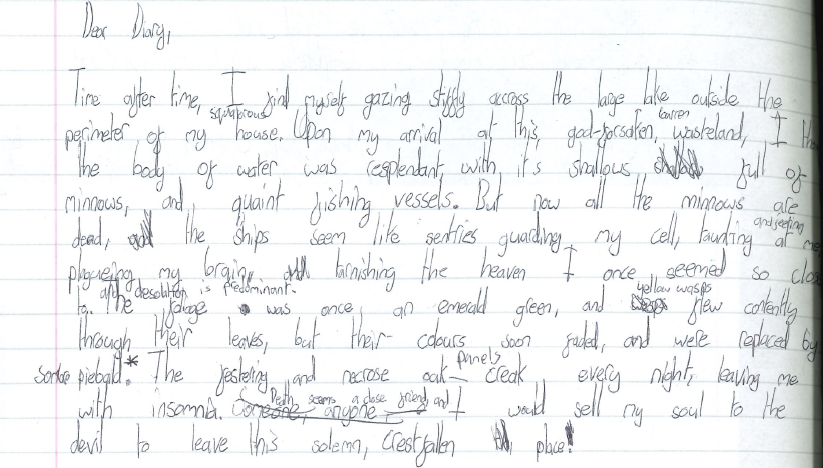 Dear Diary,
Time after time, I find myself gazing stiffly accross the large lake outside the
squalorous barren
perimeter, of my house. Upon my arrival at this, god-forsaken, wasteland, I tho
the body of water was resplendant, with it's shallows full of
minnows, and, quaint fishing vessels. But now all the minnows are
dead, the ships seem like sentries guarding my cell, taunting at me
and seeping
plagueing my brain, tarnishing the heaven I once seemed so clos
to. and desolation is predominant. The foliage was once, an emerald green, and yellow wasps flew contently
through their leaves, but their colours soon faded, and were replaced by
sombre piebald.* The festering and necrose oak panels creak every night, leaving me
with insomnia. Someone, anyone Death seems a close friend, and I would sell my soul to the
devil to leave this solemn, crestfallen place!